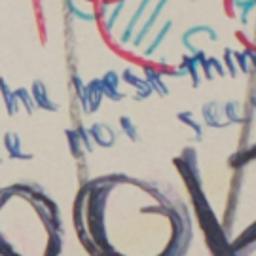 he best thin
e not see
OOK